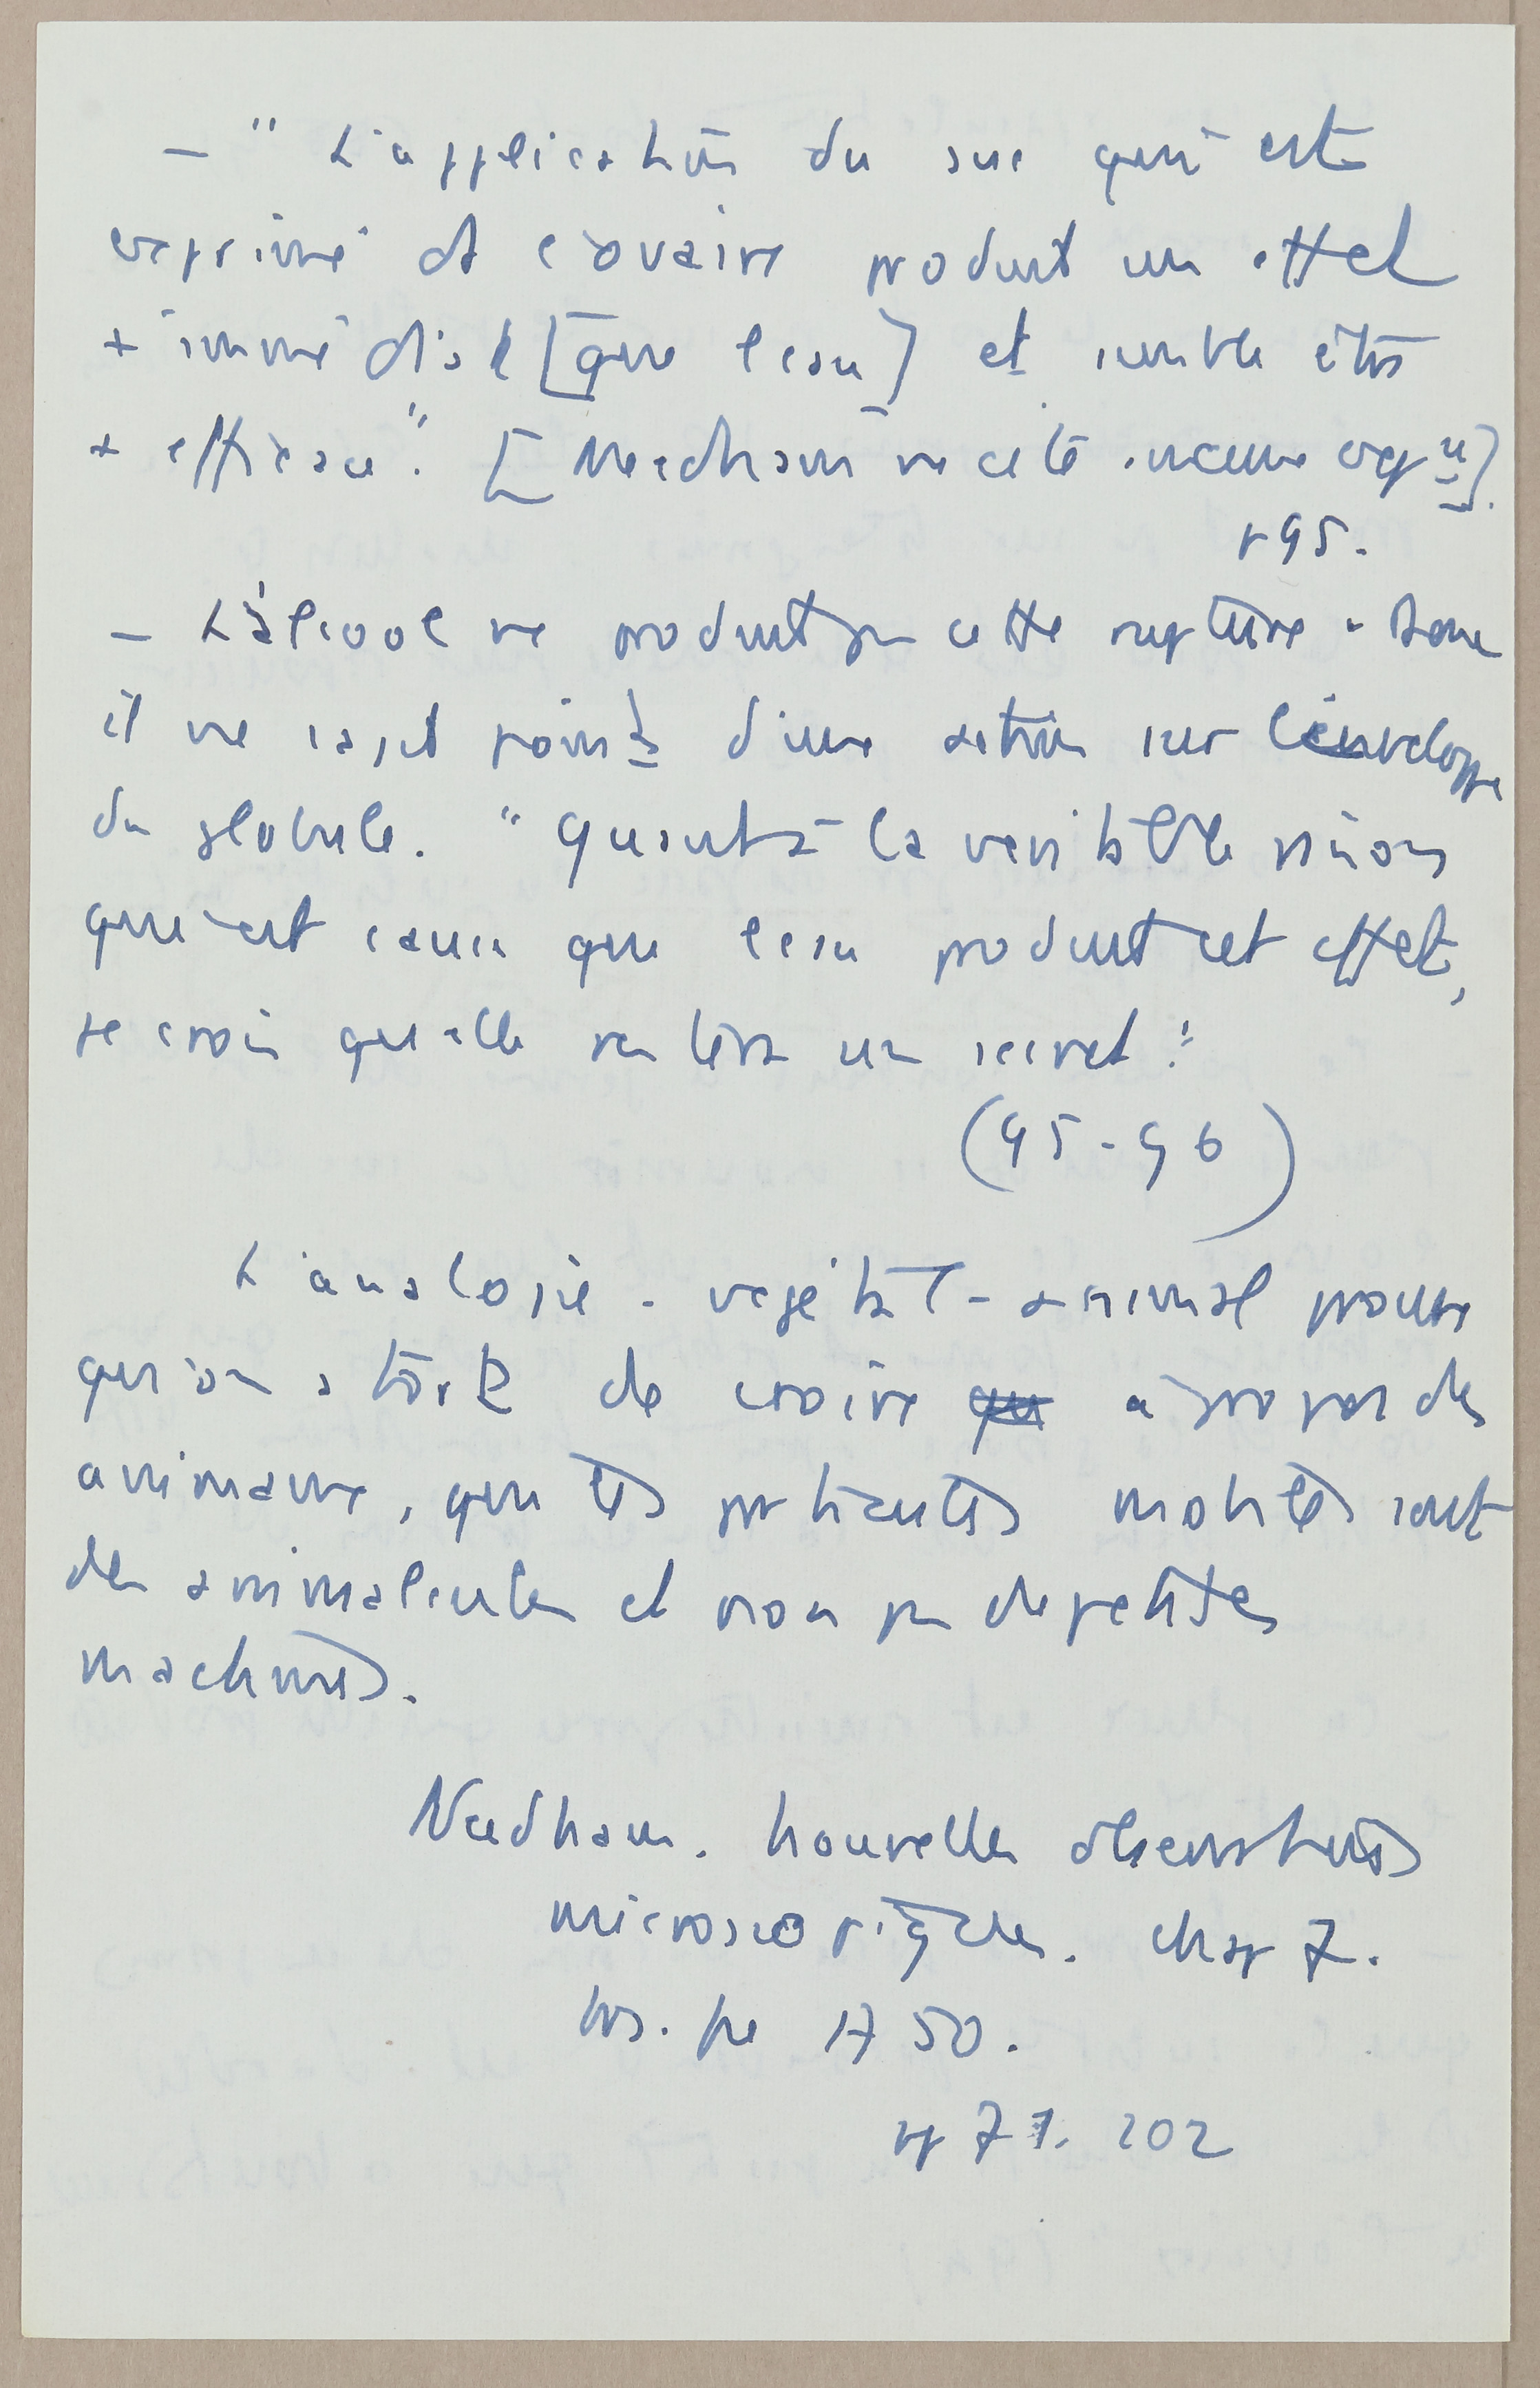 - "L'application du suc qui est
exprimé de l'ovaire produit un effet
+ immédiat [que l'eau] et semble être
+ efficace". [Needham ne cite aucune expce].
p 95.
- L'alcool ne produit pas cette rupture. Donc
il ne s'agit point d'une action sur l'enveloppe
du globule. "Quant à la véritable raison
qui est cause que l'eau produit cet effet,
je crois qu'elle restera un secret".
(95-96)
L'analogie - végétal - animal prouve
qu'on a tort de croire à propos des
animaux, que les particules mobiles sont
des animalcules et non pas de petites
machines.
Needham. Nouvelles observations
microscopiques. chap 7.
tr. fse 1750.
pp 71. 202